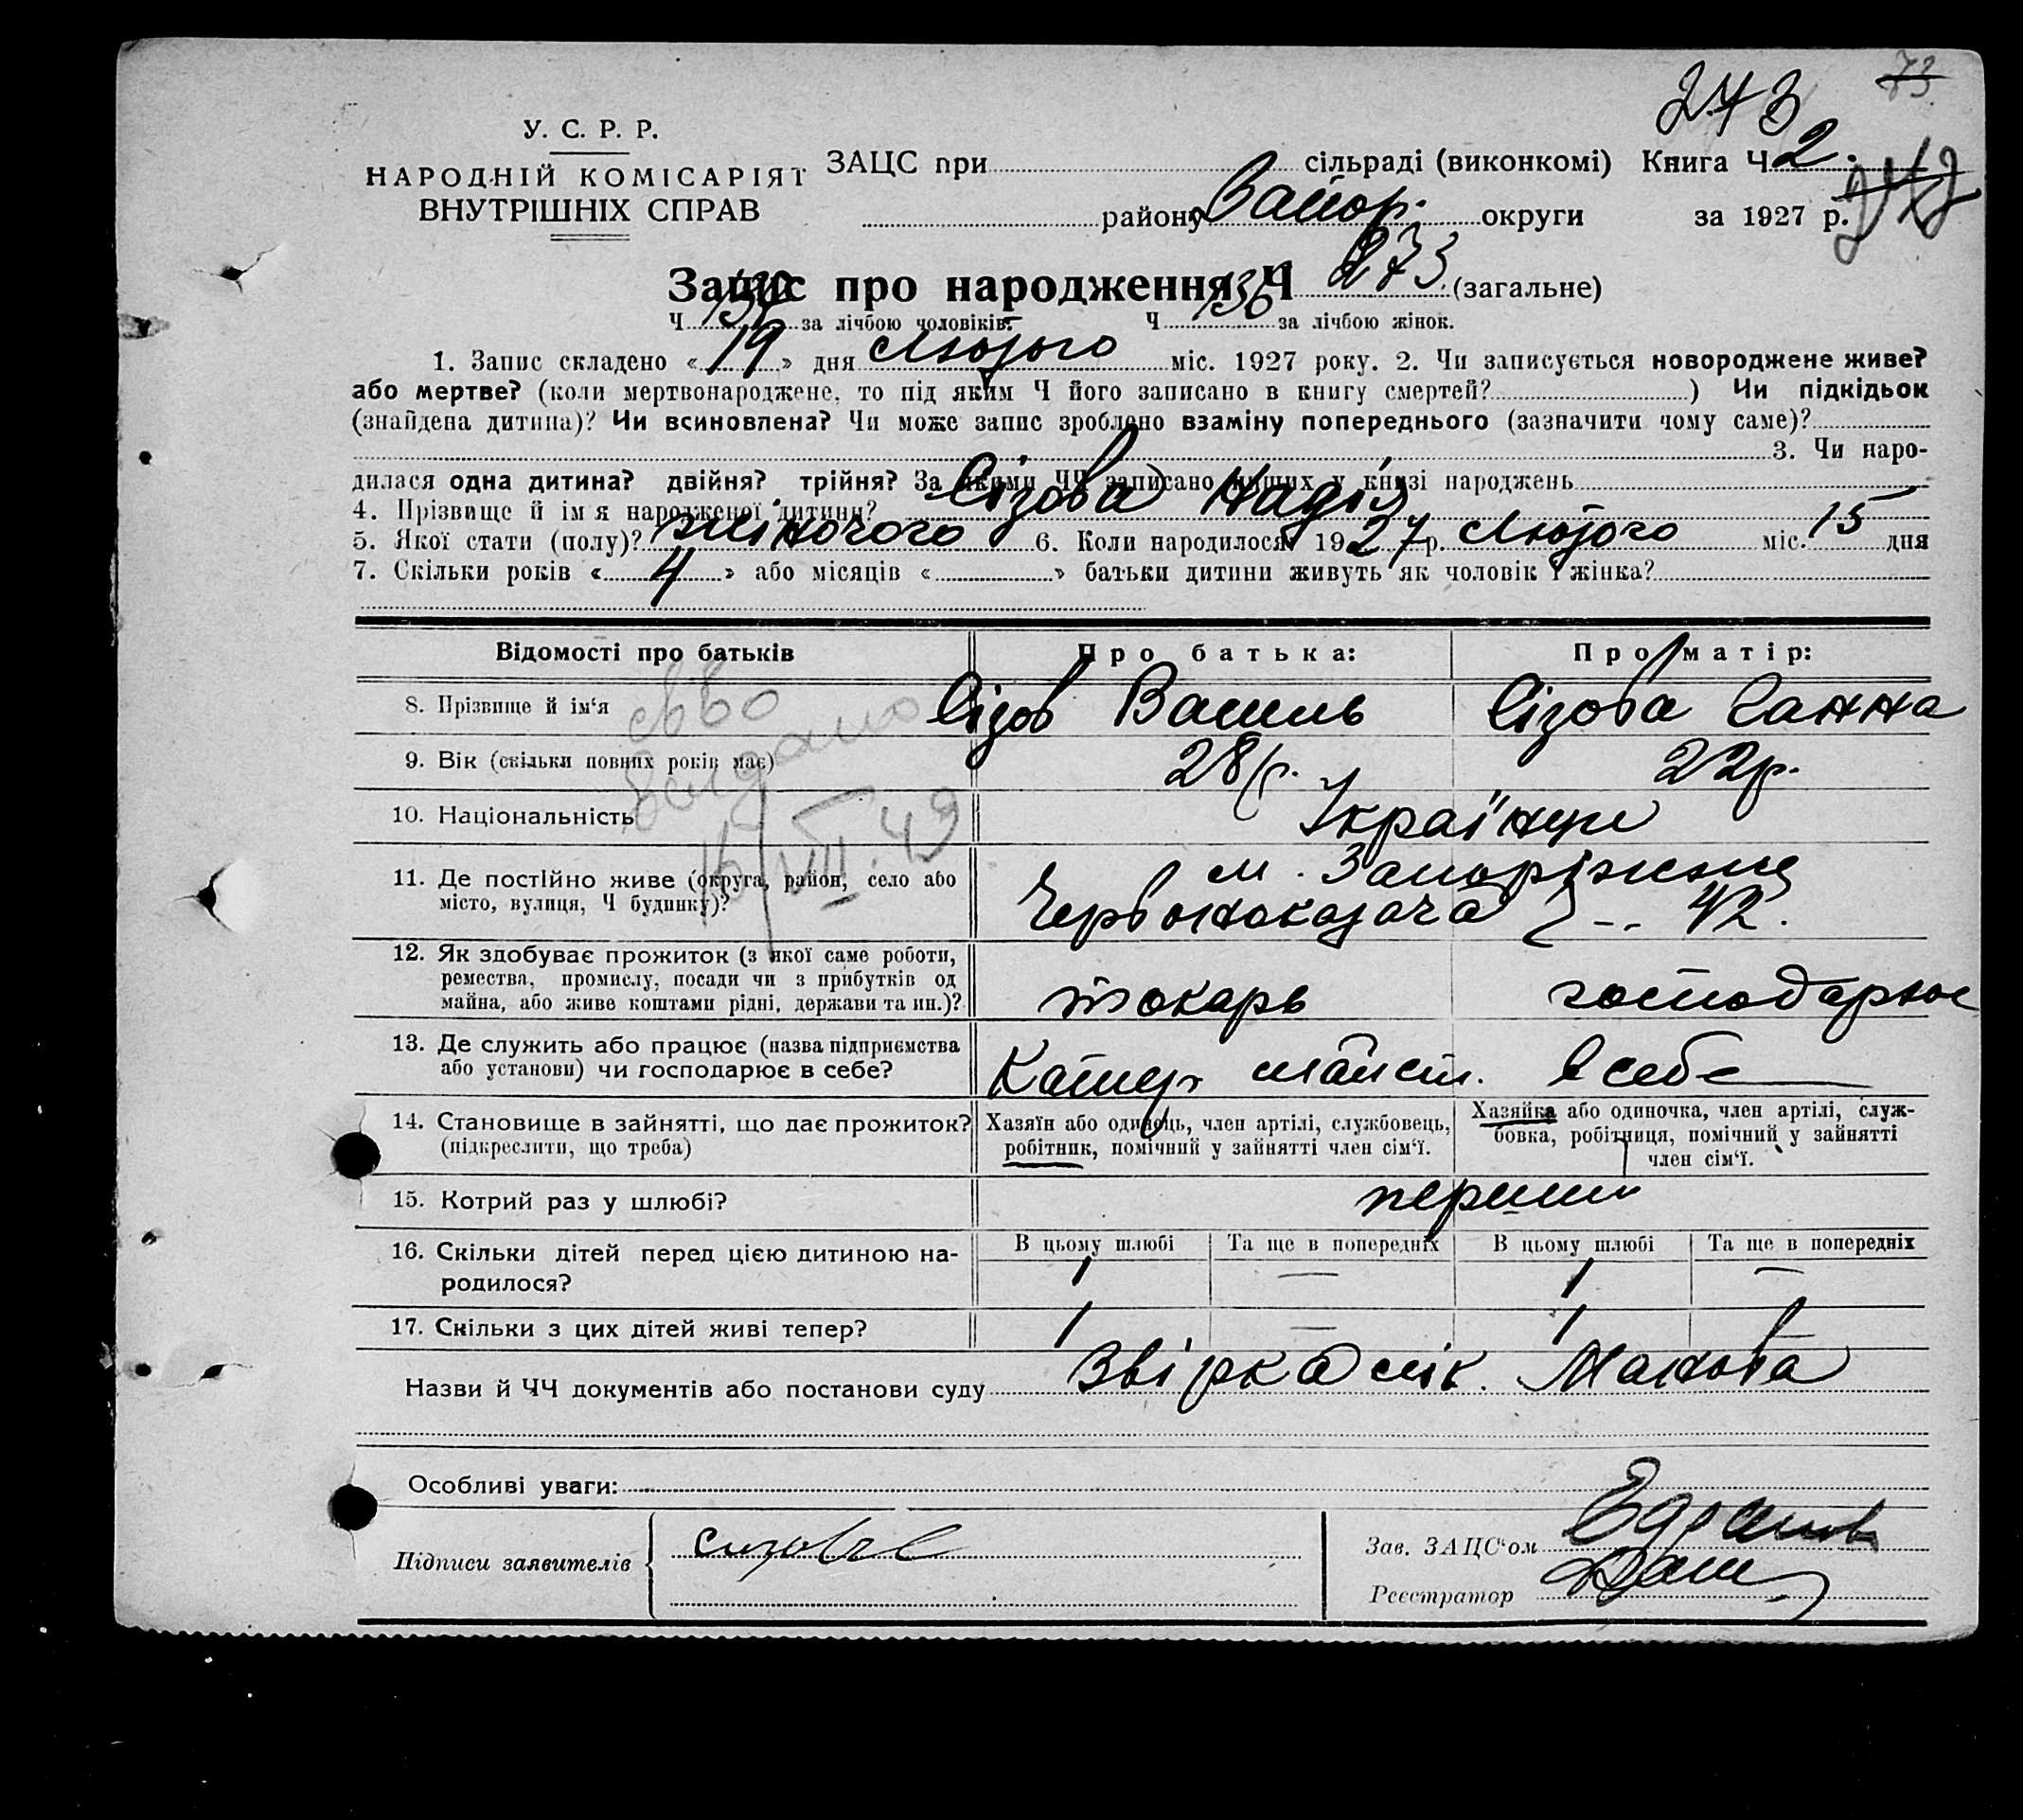 73
273
У. С. Р. Р.
НАРОДНІЙ КОМІСАРІЯТ
ВНУТРІШНІХ СПРАВ
ЗАЦС при сільраді (виконкомі) Книга Ч 2.
району Запор. округи за 1927 р.
Запис про народження Ч 273 (загальне)
Ч за лічбою чоловіків. Ч 136 за лічбою жінок.
1. Запис складено «19» дня Лютого міс. 1927 року. 2. Чи записується новороджене живе?
або мертве? (коли мертвонароджене, то під яким Ч його записано в книгу смертей? ) Чи підкідьок
(знайдена дитина)? Чи всиновлена? Чи може запис зроблено взаміну попереднього (зазначити чому саме)?
3. Чи наро-
дилася одна дитина? двійня? трійня? За якими ЧЧ записано инших у книзі народжень
4. Прізвище й ім я народженої дитини? Сізова Надія
5. Якої стати (полу)? жіночого 6. Коли народилося? 1927 р. Лютого міс. 15 дня
7. Скільки років «4» або місяців « » батьки дитини живуть як чоловік і жінка?
Відомості про батьків Про батька: Про матір:
8. Прізвище й ім‘я Сізов Василь Сізова Ганна
св во
9. Вік (скільки повних років має) 28 р. 22 р.
10. Національність Українци
16 VIII. 49
11. Де постійно живе (округа, район, село або м. Запоріжже
місто, вулиця, Ч будинку)? Червонокозача 42.
12. Як здобуває прожиток (з якої саме роботи,
ремества, промислу, посади чи з прибутків од
майна, або живе коштами рідні, держави та ин.)? токарь господарює
13. Де служить або працює (назва підприємства
або установи) чи господарює в себе? Катер. майст. в себе
14. Становище в зайнятті, що дає прожиток? Хазяїн або одинець, член артілі, службовець, Хазяйка або одиночка, член артілі, служ-
(підкреслити, що треба) робітник, помічний у зайнятті член сім‘ї. бовка, робітниця, помічний у зайнятті
член сім‘ї.
15. Котрий раз у шлюбі? перший
16. Скільки дітей перед цією дитиною на- В цьому шлюбі Та ще в попередніх В цьому шлюбі Та ще в попередніх
родилося? 1 — 1 —
17. Скільки з цих дітей живі тепер? 1 — 1 —
Назви й ЧЧ документів або постанови суду Звірка
Особливі уваги:
Підписи заявителів
Зав. ЗАЦС‘ом
Реєстратор